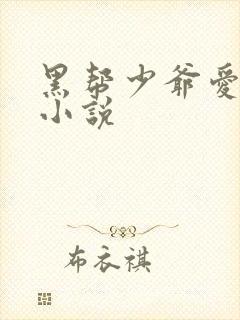 黑帮少爷愛
小説
布衣祺